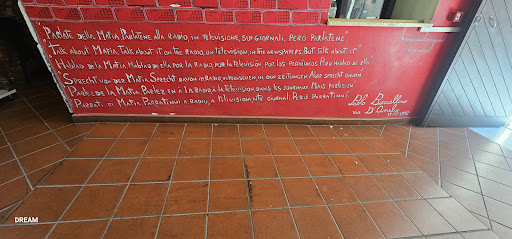 "Parlate della Mafia. Parlatene alla radio, in televisione, sui giornali, però parlatene".
"Talk about Mafia. Talk about it on the radio, on television, in the newspapers. But talk about it"
"Hablad de la Mafia. Hablad de ella por la radio, por la televisión, por los periódicos. Pero hablad de ella"
"Sprecht von der Mafia. Sprecht davon im radio, im fernsehen, in den zeitungen. Aber sprecht davon
Parlez de la Mafia. Parlez en à la radio, à la télévision, dans les journaux. Mais parlez en"
"Parrati di Mafia. Parratinni a radio, a televisioni, nte giurnali. Però parratinni"
Paolo Borsellino
Via D'Amelio
DREAM